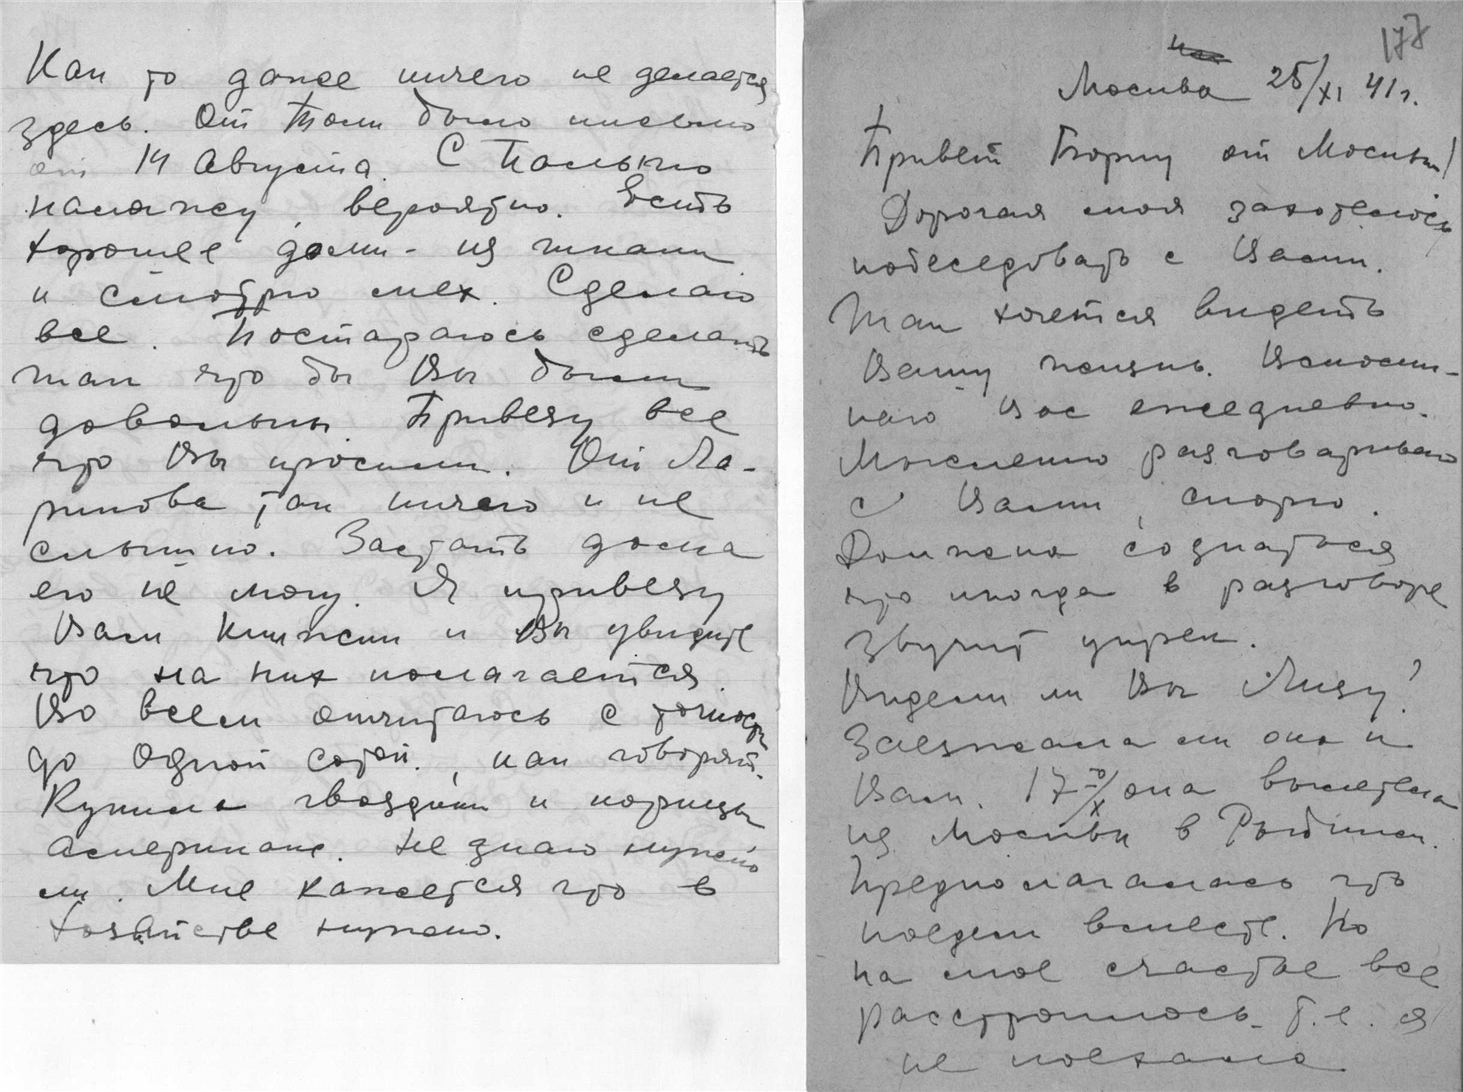 Как то даже ничего не делается
здесь. От Толи было письмо
от 14 Августа. С Полько
налажу, вероятно. Есть
хорошее доми - из ткани
и смотрю мех. Сделаю
все. Постараюсь сделать
так что бы Вы были
довольны Привезу все
что Вы просили. От Ла-
рикова так ничего и не
слышно. Застать дома
его не могу. Я привезу
Вам книжки и Вы увидите
что на них полагается
Во всем отчитаюсь с точность
до одной сотой, как говорят.
Купила гвоздики и корицы
Не знаю нужно
ли. Мне кажется что в
хозяйстве нужно.
177
Москва 25/XI 41 г.
Привет Борку от Москвы!
Дорогая моя захотелось
побеседовать с Вами.
Так хочется видеть
Вашу жизнь. Вспоми-
наю Вас ежедневно.
Мысленно разговариваю
с Вами, спорю.
Должна сознаться
что иногда в разговоре
звучит упрек.
Видели ли Вы Лизу?
Заезжала ли она к
Вам. 17го/X она вылетела
из Москвы в Рыбинск.
Предполагалось что
поедем вместе. Но
на мое счастье все
расстроилось - т.е. я
не поехала